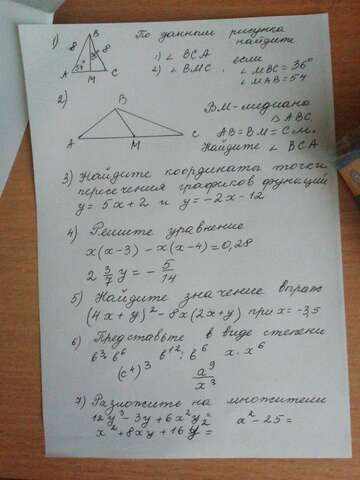 1) По данным рисунка
найдите
1) ∠ BCA если
2) ∠ BMC, ∠ MBC = 36°
∠ MAB = 54
B
8 36° 8
54°
A M C
2)
B
A M C
BM - медиана
△ ABC,
AB = BM = CM.
Найдите ∠ BCA
3) Найдите координаты точки
пересечения графиков функций
y = 5x + 2 и y = -2x - 12
4) Решите уравнение
x(x-3) - x(x-4) = 0,28
2 3/7 y = - 5/14
5) Найдите значение выраж
(4x + y)² - 8x(2x + y) при x = -3,5
6) Представьте в виде степени
b³ · b⁶ b¹² : b⁶ x · x⁶
(c⁴)³ a⁹/x³
7) Разложить на множители
12y³ - 3y + 6x²y = a² - 25 =
x² + 8xy + 16y² =